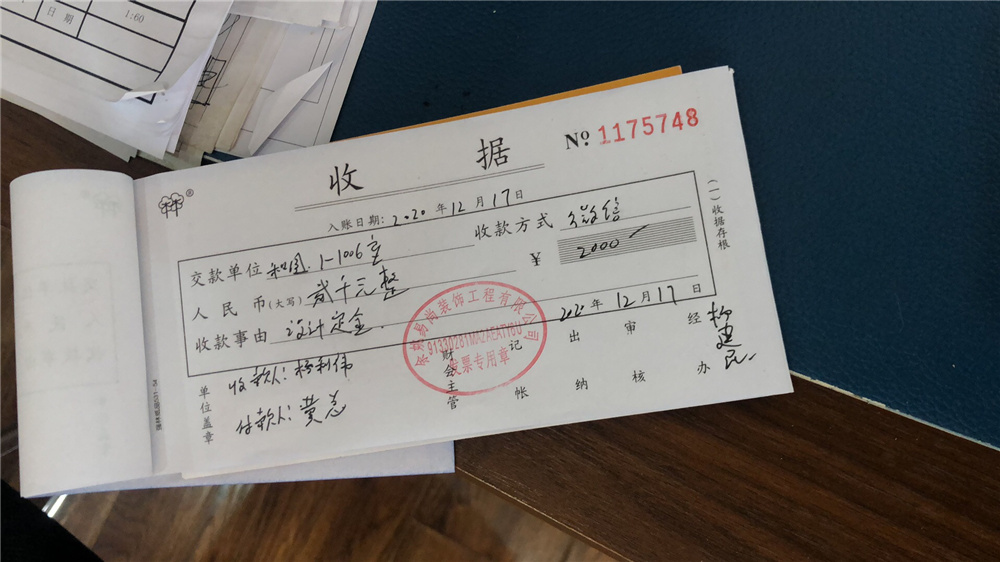 日期
1:60
收据
№ 1175748
入账日期：2020年12月17日
交款单位 和园.1-1006室 收款方式 微信
人民币(大写) 贰千元整 ¥ 2000
收款事由 设计定金 2020年12月17日
(一)收据存根
单位盖章
收款人：杨利伟
付款人：黄总
财会主管 记帐 出纳 审核 经办
余姚易尚装饰工程有限公司
发票专用章